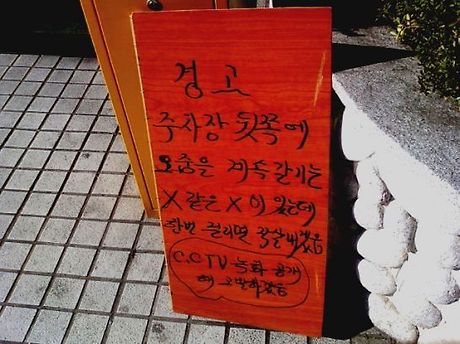 경고
주차장 뒷쪽에
오줌을 계속 갈기는
X 같은 X 이 있는데
한번 걸리면 작살내겠음
C.CTV 녹화 공개
해 고발하겠음